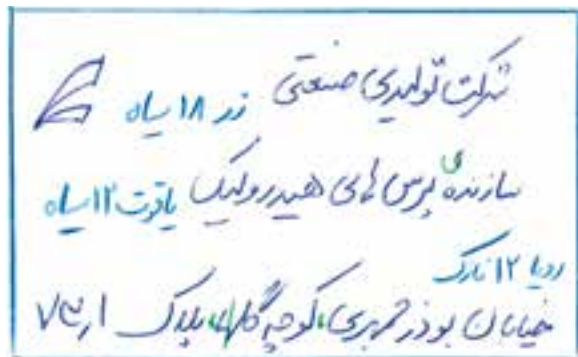 شرکت تولیدی صنعتی زر ۱۸ سیاه
سازنده‌ی پرس های هیدرولیک یاقوت ۱۲ سیاه
رویا ۱۲ نازک
خیابان بوذرجمهری، کوچه گلها، پلاک